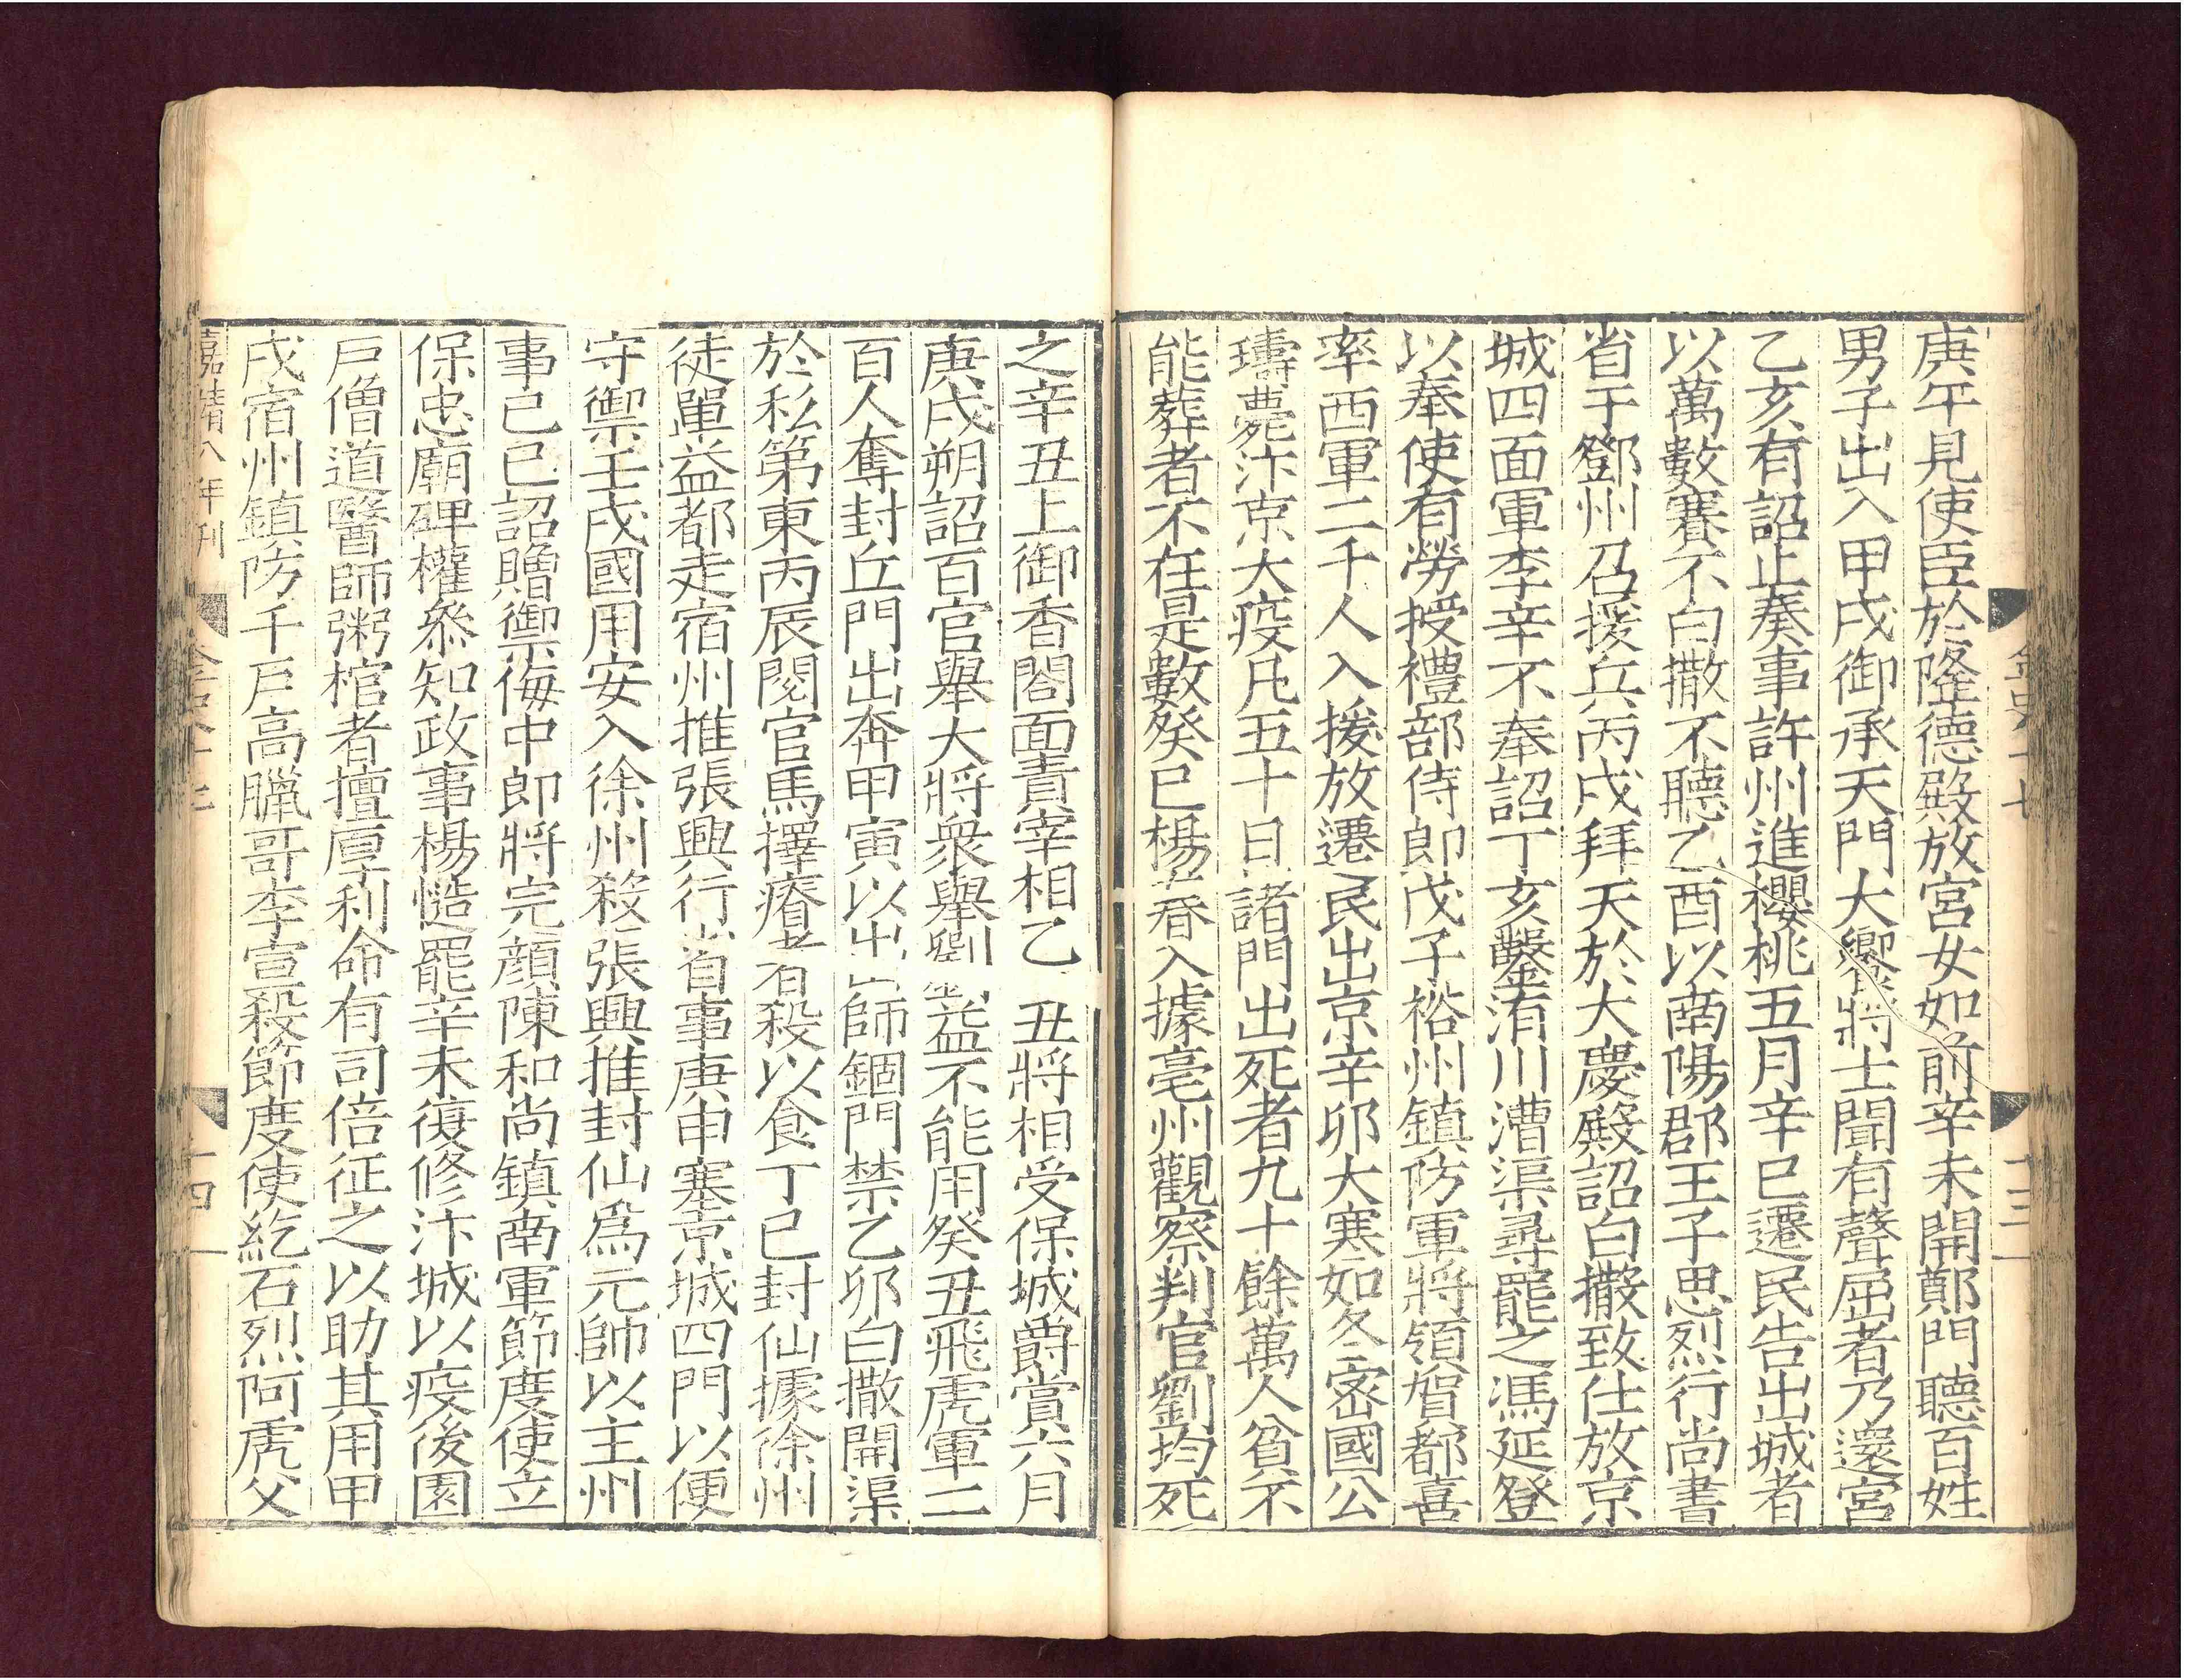 金史十七
十三
庚午見使臣於隆德殿放宮女如前辛未開鄭門聽百姓
男子出入甲戌御承天門大饗將士聞有聲屈者乃還宮
乙亥有詔止奏事許州進櫻桃五月辛巳遷民告出城者
以萬數賽不白撒不聽乙酉以南陽郡王子思烈行尚書
省于鄧州召援兵丙戌拜天於大慶殿詔白撒致仕放京
城四面軍李辛不奉詔丁亥鑿洧川漕渠尋罷之馮延登
以奉使有勞授禮部侍郎戊子裕州鎮防軍將領賀都喜
率西軍二千人入援放遷民出京辛卯大寒如冬密國公
璹薨汴京大疫凡五十日諸門出死者九十餘萬人貧不
能葬者不在是數癸巳楊春入據亳州觀察判官劉均死
之辛丑上御香閤面責宰相乙丑將相受保城爵賞六月
庚戌朔詔百官舉大將衆舉劉益不能用癸丑飛虎軍二
百人奪封丘門出奔甲寅以出師錮門禁乙卯白撒開渠
於私第東丙辰閱官馬擇瘠者殺以食丁巳封仙據徐州
徒單益都走宿州推張興行省事庚申塞京城四門以便
守禦壬戌國用安入徐州殺張興推封仙爲元帥以主州
事己巳詔贈禦侮中郎將完顏陳和尚鎮南軍節度使立
保忠廟碑權叅知政事楊慥罷辛未復修汴城以疫後園
戶僧道醫師粥棺者擅厚利命有司倍征之以助其用甲
戌宿州鎮防千戶高臘哥李宣殺節度使紇石烈阿虎父
嘉靖八年刊
金史十七
十四